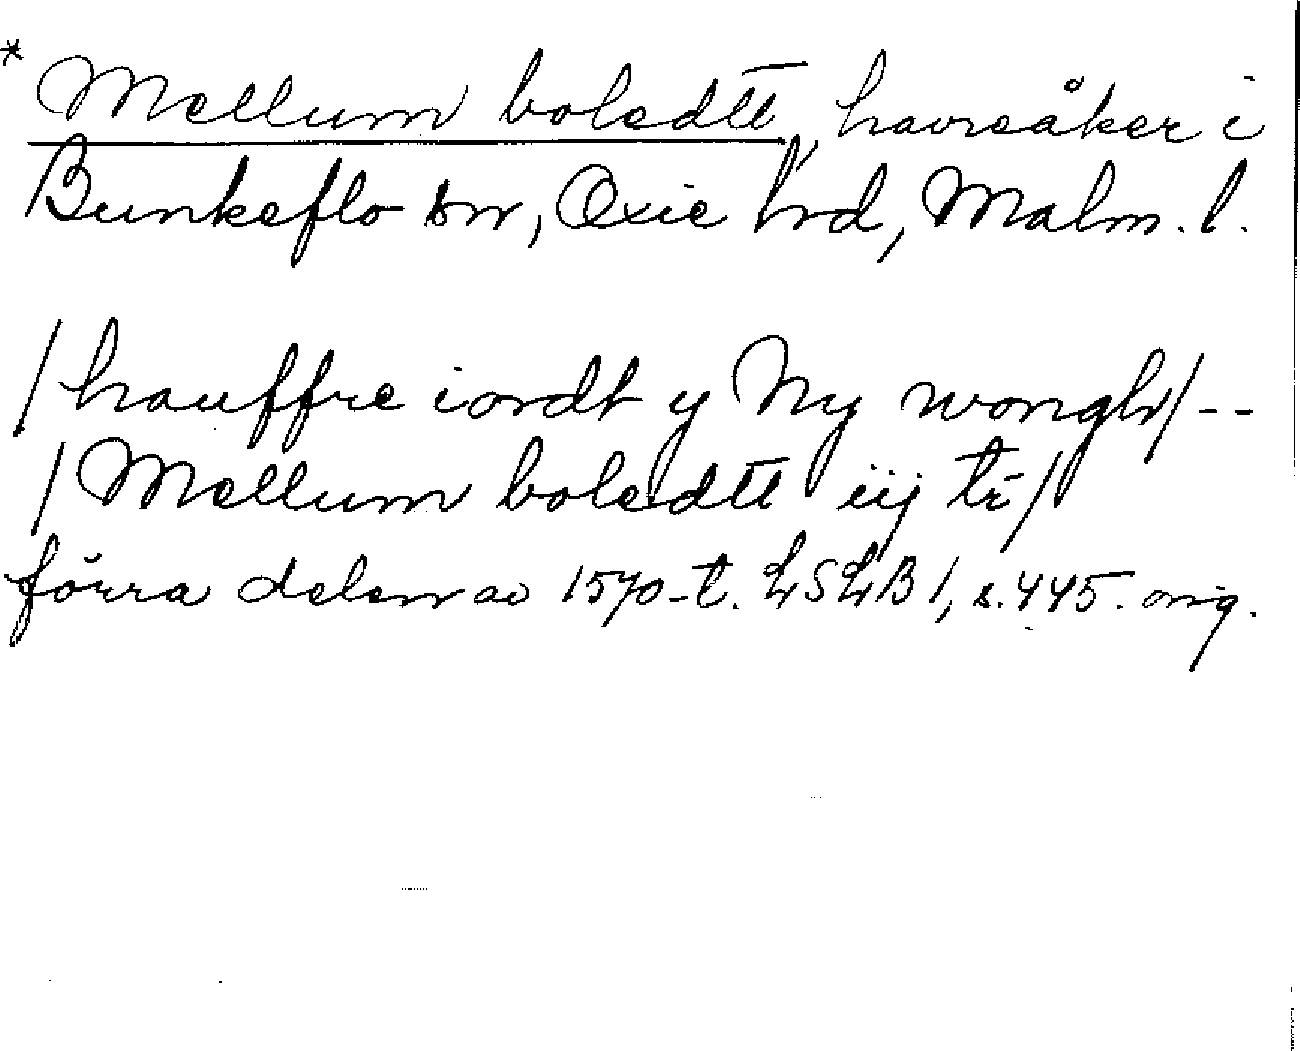 * Mellum boledtt, havreåker i
Bunkeflo sn, Oxie hrd, Malm. l.
/ hauffre iordt y Ny wongh / --
/ Mellum boledtt iij tr /
förra delen av 1570-t. LSLB 1, s. 445. orig.